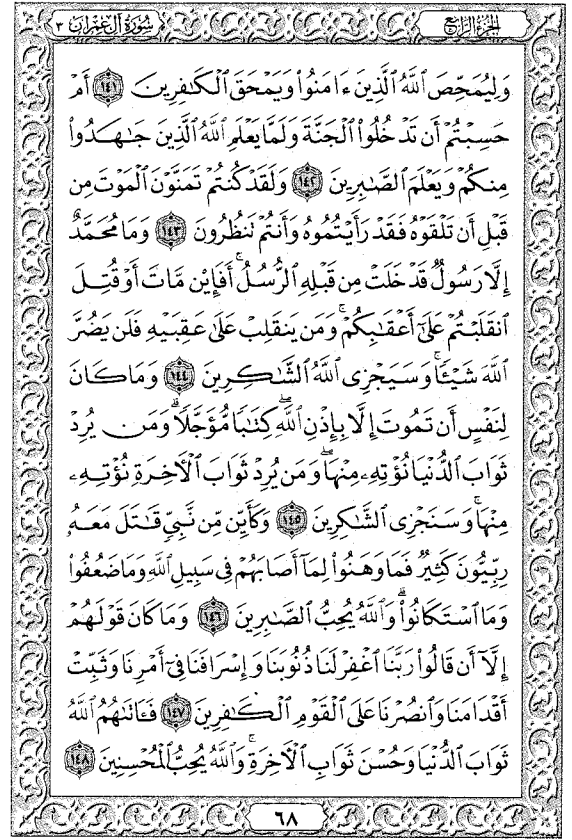 الجزء الرابع
سورة آل عمران ٣
وَلِيُمَحِّصَ ٱللَّهُ ٱلَّذِينَ ءَامَنُوا۟ وَيَمْحَقَ ٱلْكَـٰفِرِينَ ١٤١ أَمْ
حَسِبْتُمْ أَن تَدْخُلُوا۟ ٱلْجَنَّةَ وَلَمَّا يَعْلَمِ ٱللَّهُ ٱلَّذِينَ جَـٰهَدُوا۟
مِنكُمْ وَيَعْلَمَ ٱلصَّـٰبِرِينَ ١٤٢ وَلَقَدْ كُنتُمْ تَمَنَّوْنَ ٱلْمَوْتَ مِن
قَبْلِ أَن تَلْقَوْهُ فَقَدْ رَأَيْتُمُوهُ وَأَنتُمْ تَنظُرُونَ ١٤٣ وَمَا مُحَمَّدٌ
إِلَّا رَسُولٌ قَدْ خَلَتْ مِن قَبْلِهِ ٱلرُّسُلُ ۚ أَفَإِي۟ن مَّاتَ أَوْ قُتِلَ
ٱنقَلَبْتُمْ عَلَىٰٓ أَعْقَـٰبِكُمْ ۚ وَمَن يَنقَلِبْ عَلَىٰ عَقِبَيْهِ فَلَن يَضُرَّ
ٱللَّهَ شَيْـًٔا ۗ وَسَيَجْزِى ٱللَّهُ ٱلشَّـٰكِرِينَ ١٤٤ وَمَا كَانَ
لِنَفْسٍ أَن تَمُوتَ إِلَّا بِإِذْنِ ٱللَّهِ ۖ كِتَـٰبًا مُّؤَجَّلًا ۗ وَمَن يُرِدْ
ثَوَابَ ٱلدُّنْيَا نُؤْتِهِۦ مِنْهَا ۖ وَمَن يُرِدْ ثَوَابَ ٱلْـَٔاخِرَةِ نُؤْتِهِۦ
مِنْهَا ۚ وَسَنَجْزِى ٱلشَّـٰكِرِينَ ١٤٥ وَكَأَيِّن مِّن نَّبِىٍّ قَـٰتَلَ مَعَهُۥ
رِبِّيُّونَ كَثِيرٌ فَمَا وَهَنُوا۟ لِمَآ أَصَابَهُمْ فِى سَبِيلِ ٱللَّهِ وَمَا ضَعُفُوا۟
وَمَا ٱسْتَكَانُوا۟ ۗ وَٱللَّهُ يُحِبُّ ٱلصَّـٰبِرِينَ ١٤٦ وَمَا كَانَ قَوْلَهُمْ
إِلَّآ أَن قَالُوا۟ رَبَّنَا ٱغْفِرْ لَنَا ذُنُوبَنَا وَإِسْرَافَنَا فِىٓ أَمْرِنَا وَثَبِّتْ
أَقْدَامَنَا وَٱنصُرْنَا عَلَى ٱلْقَوْمِ ٱلْكَـٰفِرِينَ ١٤٧ فَـَٔاتَىٰهُمُ ٱللَّهُ
ثَوَابَ ٱلدُّنْيَا وَحُسْنَ ثَوَابِ ٱلْـَٔاخِرَةِ ۗ وَٱللَّهُ يُحِبُّ ٱلْمُحْسِنِينَ ١٤٨
٦٨